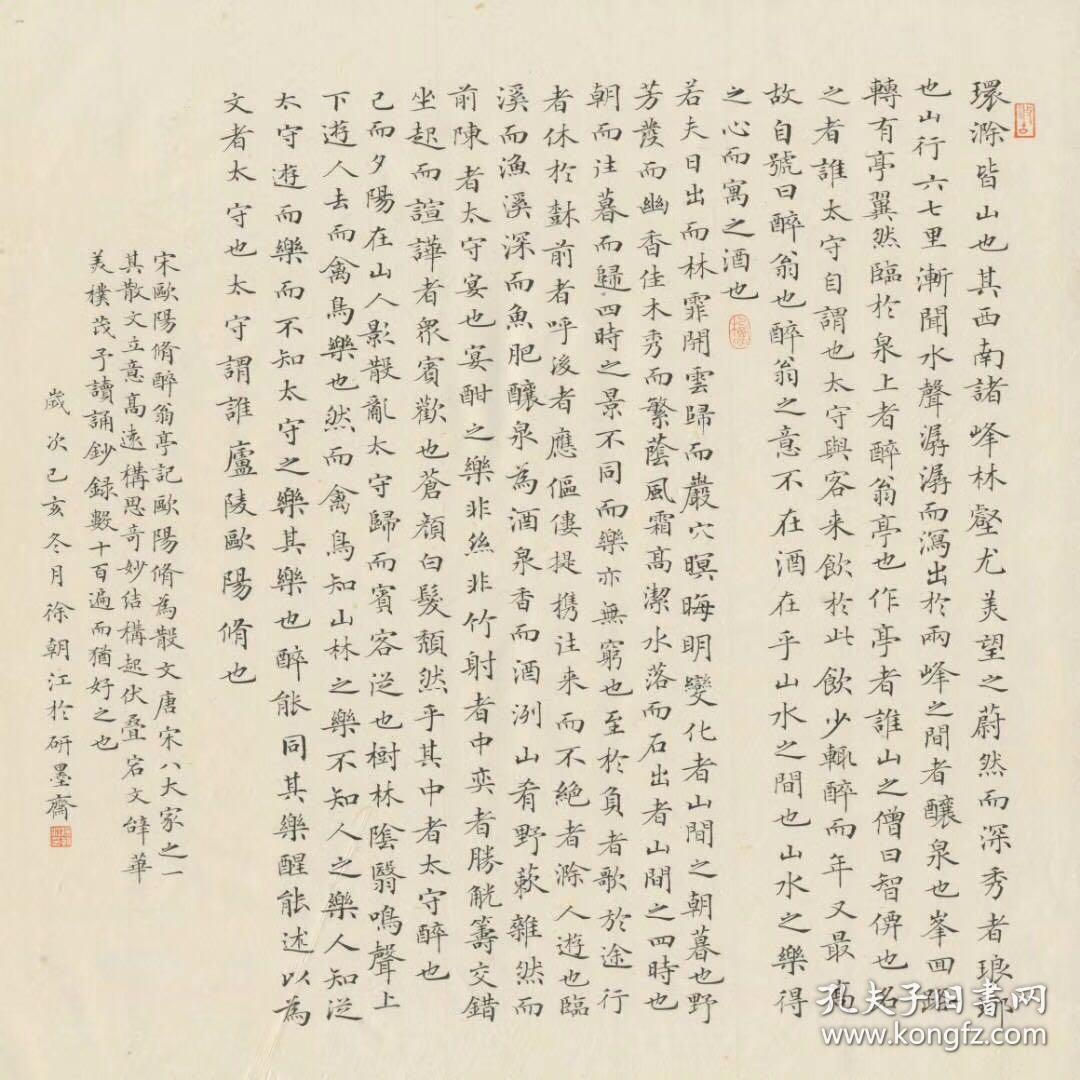 環滁皆山也其西南諸峰林壑尤美望之蔚然而深秀者琅鄒
也山行六七里漸聞水聲潺潺而瀉出於兩峰之間者釀泉也峯回路
轉有亭翼然臨於泉上者醉翁亭也作亭者誰山之僧曰智僊也名
之者誰太守自謂也太守與客来飲於此飲少輒醉而年又最高
故自號曰醉翁也醉翁之意不在酒在乎山水之間也山水之樂得
之心而寓之酒也
若夫日出而林霏開雲歸而巖穴暝晦明變化者山間之朝暮也野
芳發而幽香佳木秀而繁蔭風霜高潔水落而石出者山間之四時也
朝而往暮而歸四時之景不同而樂亦無窮也至於負者歌於途行
者休於𣗳前者呼後者應傴僂提携往来而不絶者滁人遊也臨
溪而漁溪深而魚肥釀泉為酒泉香而酒洌山肴野蔌雜然而
前陳者太守宴也宴酣之樂非絲非竹射者中奕者勝觥籌交錯
坐起而諠譁者衆賓歡也蒼顏白髮頹然乎其中者太守醉也
已而夕陽在山人影散亂太守歸而賓客從也樹林陰翳鳴聲上
下遊人去而禽鳥樂也然而禽鳥知山林之樂不知人之樂人知從
太守遊而樂而不知太守之樂其樂也醉能同其樂醒能述以為
文者太守也太守謂誰廬陵歐陽脩也
宋歐陽脩醉翁亭記歐陽脩為散文唐宋八大家之一
其散文立意高遠構思奇妙結構起伏叠宕文辭華
美樸茂予讀誦鈔録數十百遍而猶好之也
歲次己亥冬月徐朝江於研墨齋
孔夫子旧书网
www.kongfz.com